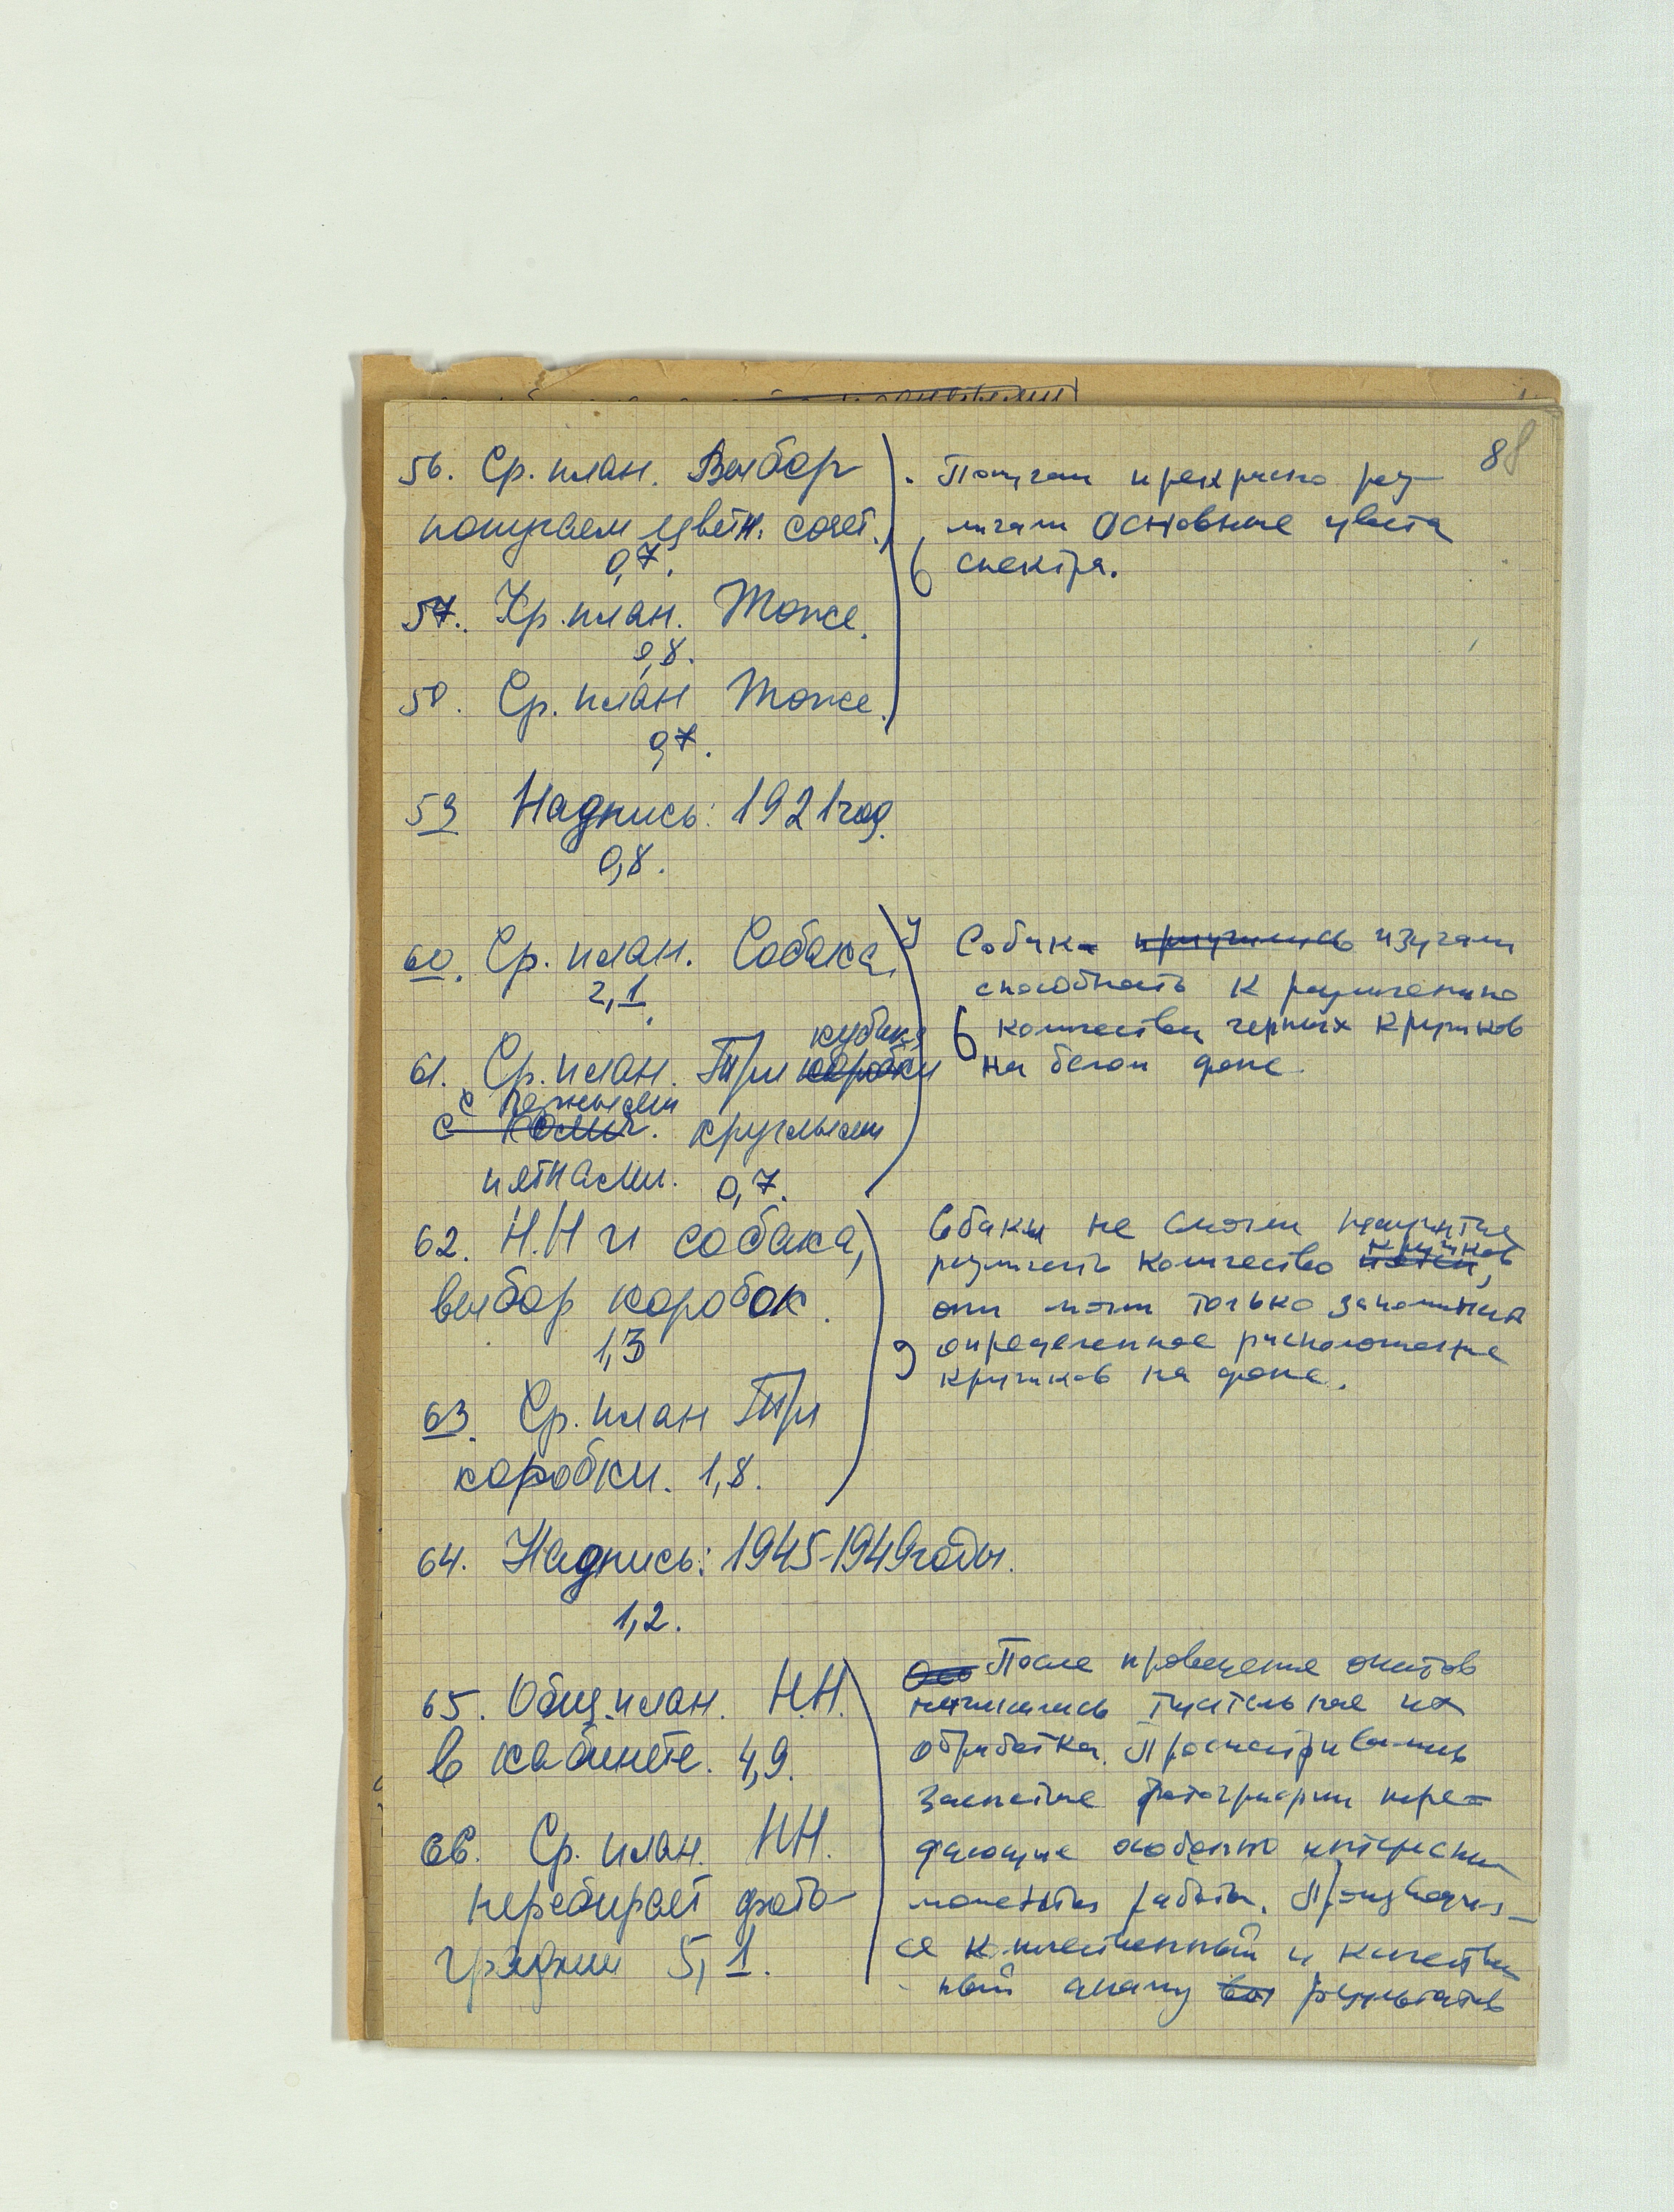 88
56. Ср. план. Выбор
попугаем цветн. сочет.
0,7.
57. Кр. план. Тоже.
0,8.
58. Ср. план Тоже.
0,7.
Попугаи прекрасно раз-
личали основные цвета
спектра.
59 Надпись: 1921 год.
0,8.
60. Ср. план. Собака.
2,1.
61. Ср. план. Три коробки
кубика
с черными
с круглыми
пятнами. 0,7.
У Собак приучились изучали
способность к различению
количества черных кружков
на белом фоне.
62. Н.Н и собака,
выбор коробок.
1,3
63. Ср. план Три
коробки. 1,8.
Собаки не смогли научиться
различать количество пятен,
кружков
они могли только запоминать
определенное расположение
кружков на фоне.
64. Надпись: 1945-1949 годы.
1,2.
65. Общ. план. Н.Н.
в кабинете. 4,9.
66. Ср. план. НН.
перебирает фото-
графии 5,1.
После проведения опытов
начиналась тщательная их
обработка. Просматривались
заснятые фотографии пере-
дающие особенно интересные
моменты работы. Производил-
ся количественный и качествен
ный анализ результатов